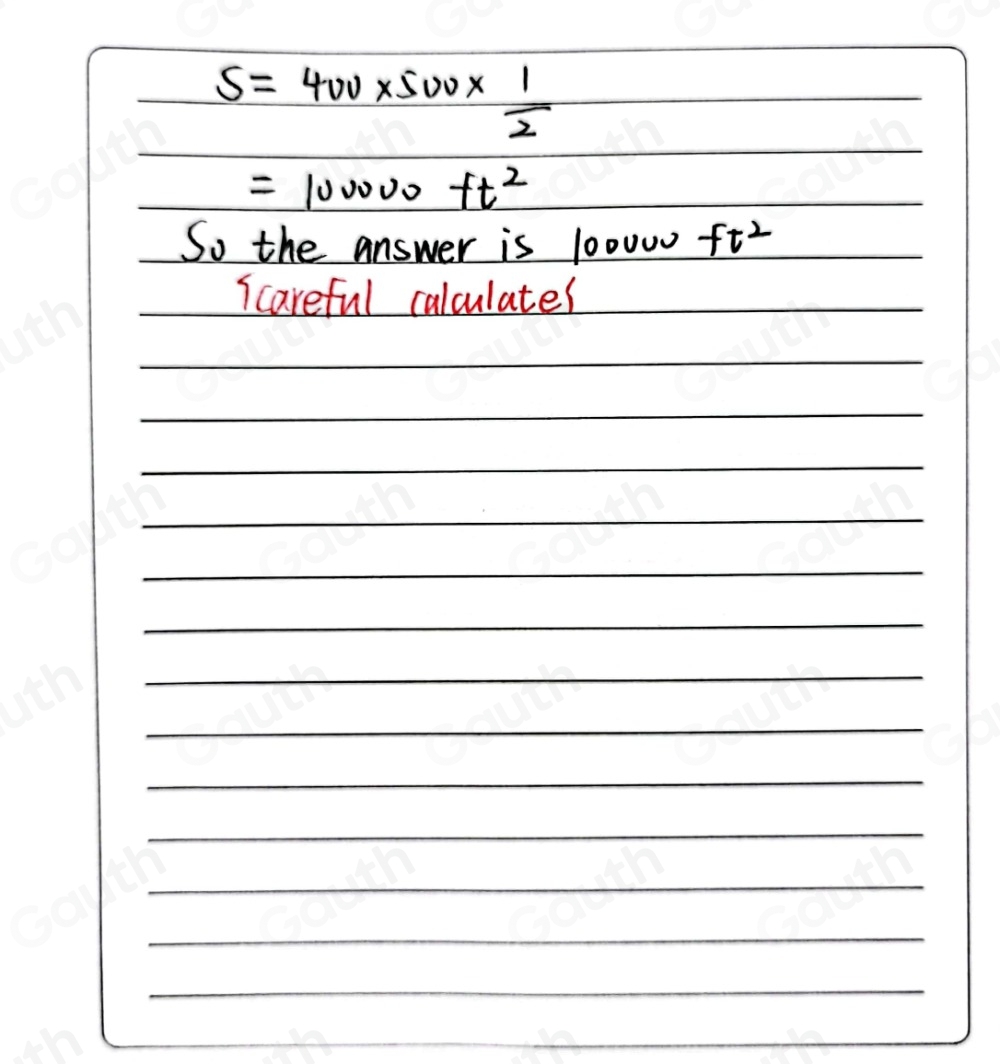 S = 400 × 500 × 1/2
= 100000 ft²
So the answer is 100000 ft²
{careful calculate}